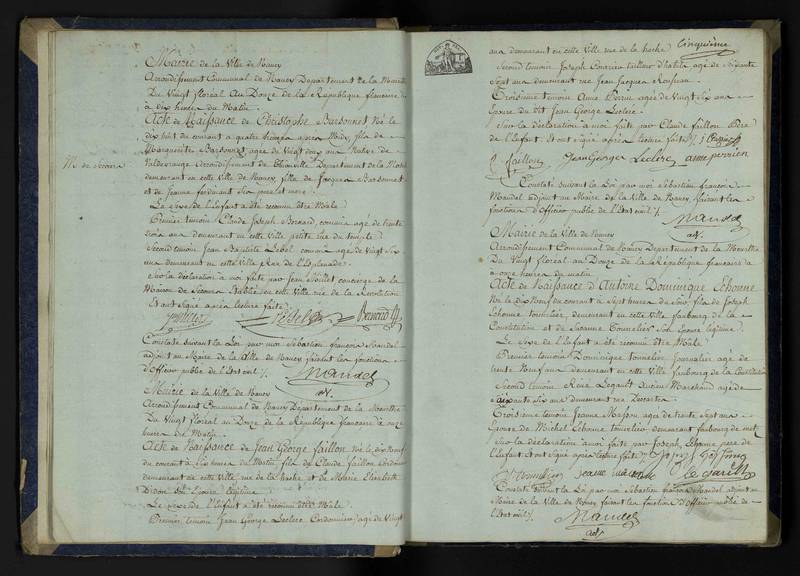 Mairie de la Ville de Nancy
Arrondissement Communal de Nancy Département de la Meurthe
Du Vingt floréal an Douze de la République française
à dix heures du Matin
Acte de Naissance de Christophe Barsonnet Né le
dix huit du courant à quatre heures après Midy, fils de
Marguerite Barsonnet agée de Vingt deux ans Native de
Valdrange arrondissement de Département de la Moselle
M. de Secours
demeurant en cette Ville de Nancy, fille de Jacques Barsonnet
et de Jeanne ses pere et mere
Le Sexe de l'Enfant a été reconnu être Male
Premier temoin Claude Joseph Bernard, commis agé de trente
trois ans demeurant en cette Ville petite rue du temple
Second temoin Jean Baptiste Lebel commis agé de Vingt Six
ans demeurant en cette Ville Rue de l'Esplanade
Sur la déclaration à moi faite par Jean concierge de la
Maison de Secours Etablie en cette Ville rue de la Révolution
Et ont Signé après lecture faite
Lebel Bernard
Constaté suivant la Loi par moi Sébastien françois Mandel
adjoint au Maire de la Ville de Nancy faisant les fonctions
d'Officier public de l'Etat civil
Mandel
adt.
Mairie de la Ville de Nancy
Arrondissement Communal de Nancy Département de la Meurthe
Du Vingt floréal an Douze de la République française à onze
heures du Matin
Acte de Naissance de Jean George faillon Né le dix Neuf
du courant à Six heures du Matin, fils de Claude faillon
demeurant en cette Ville rue de la hache et de Marie Elisabeth
Didon Son Epouse légitime
Le Sexe de l'Enfant a été reconnu être Male
Premier temoin Jean George Leclerc Cordonnier, agé de Vingt
ans demeurant en cette Ville rue de la hache Cinquième
Second temoin Joseph tailleur d'habits agé de Soixante
Sept ans demeurant rue Jean Jacques Rousseau
Troisième temoin Anne Perrin agée de Vingt Six ans
Epouse du dit Jean George Leclerc
Sur la déclaration à moi faite par Claude faillon Père
de l'Enfant Et ont Signé après lecture faite
C faillon Jean George Leclerc anne perrien
Constaté suivant la Loi par moi Sébastien françois
Mandel adjoint au Maire de la Ville de Nancy faisant les
fonctions d'Officier public de l'Etat civil
Mandel
adt.
Mairie de la Ville de Nancy
Arrondissement Communal de Nancy Département de la Meurthe
Du Vingt floréal an Douze de la République française à
onze heures du matin
Acte de Naissance d'Antoine Dominique Lhomme
Né le dix Neuf du courant à Sept heures du Soir fils de Joseph
Lhomme tonnelier, demeurant en cette Ville faubourg de la
Constitution et de Susanne Tonnelier Son Epouse légitime
Le Sexe de l'Enfant a été reconnu être Male
Premier temoin Dominique Tonnelier Journalier agé de
trente Neuf ans demeurant en cette Ville faubourg de la Constitution
Second temoin Legarit Marchand agé de
ans demeurant rue Descartes
Troisième temoin Jeanne agée de trente Sept ans
Epouse de Michel Lhomme tonnelier demeurant faubourg de metz
Sur la déclaration à moi faite par Joseph Lhomme père de
l'Enfant Et ont Signé après lecture faite
Constaté suivant la Loi par moi Sébastien françois Mandel adjoint au
Maire de la Ville de Nancy faisant les fonctions d'Officier public de
l'Etat civil
Mandel
adt.